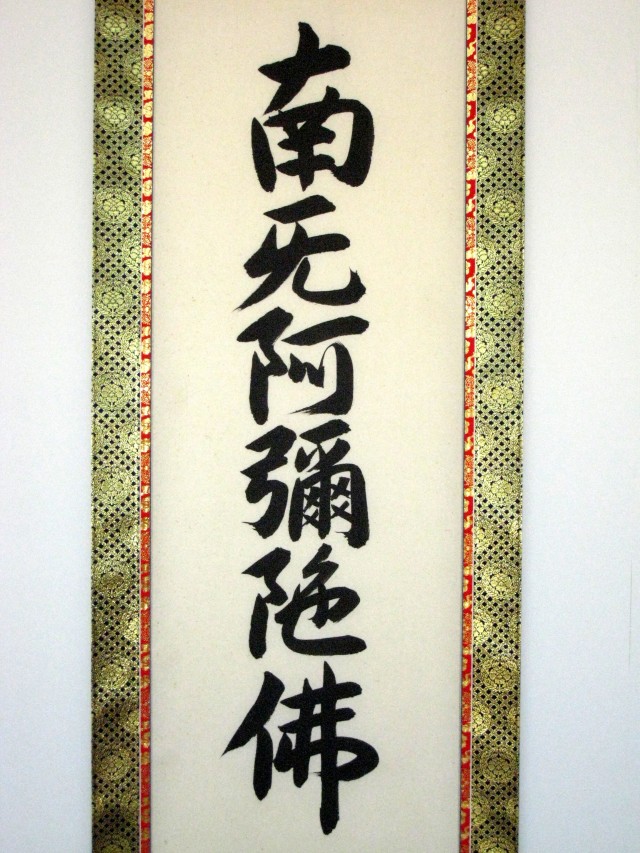 南无阿彌陁佛